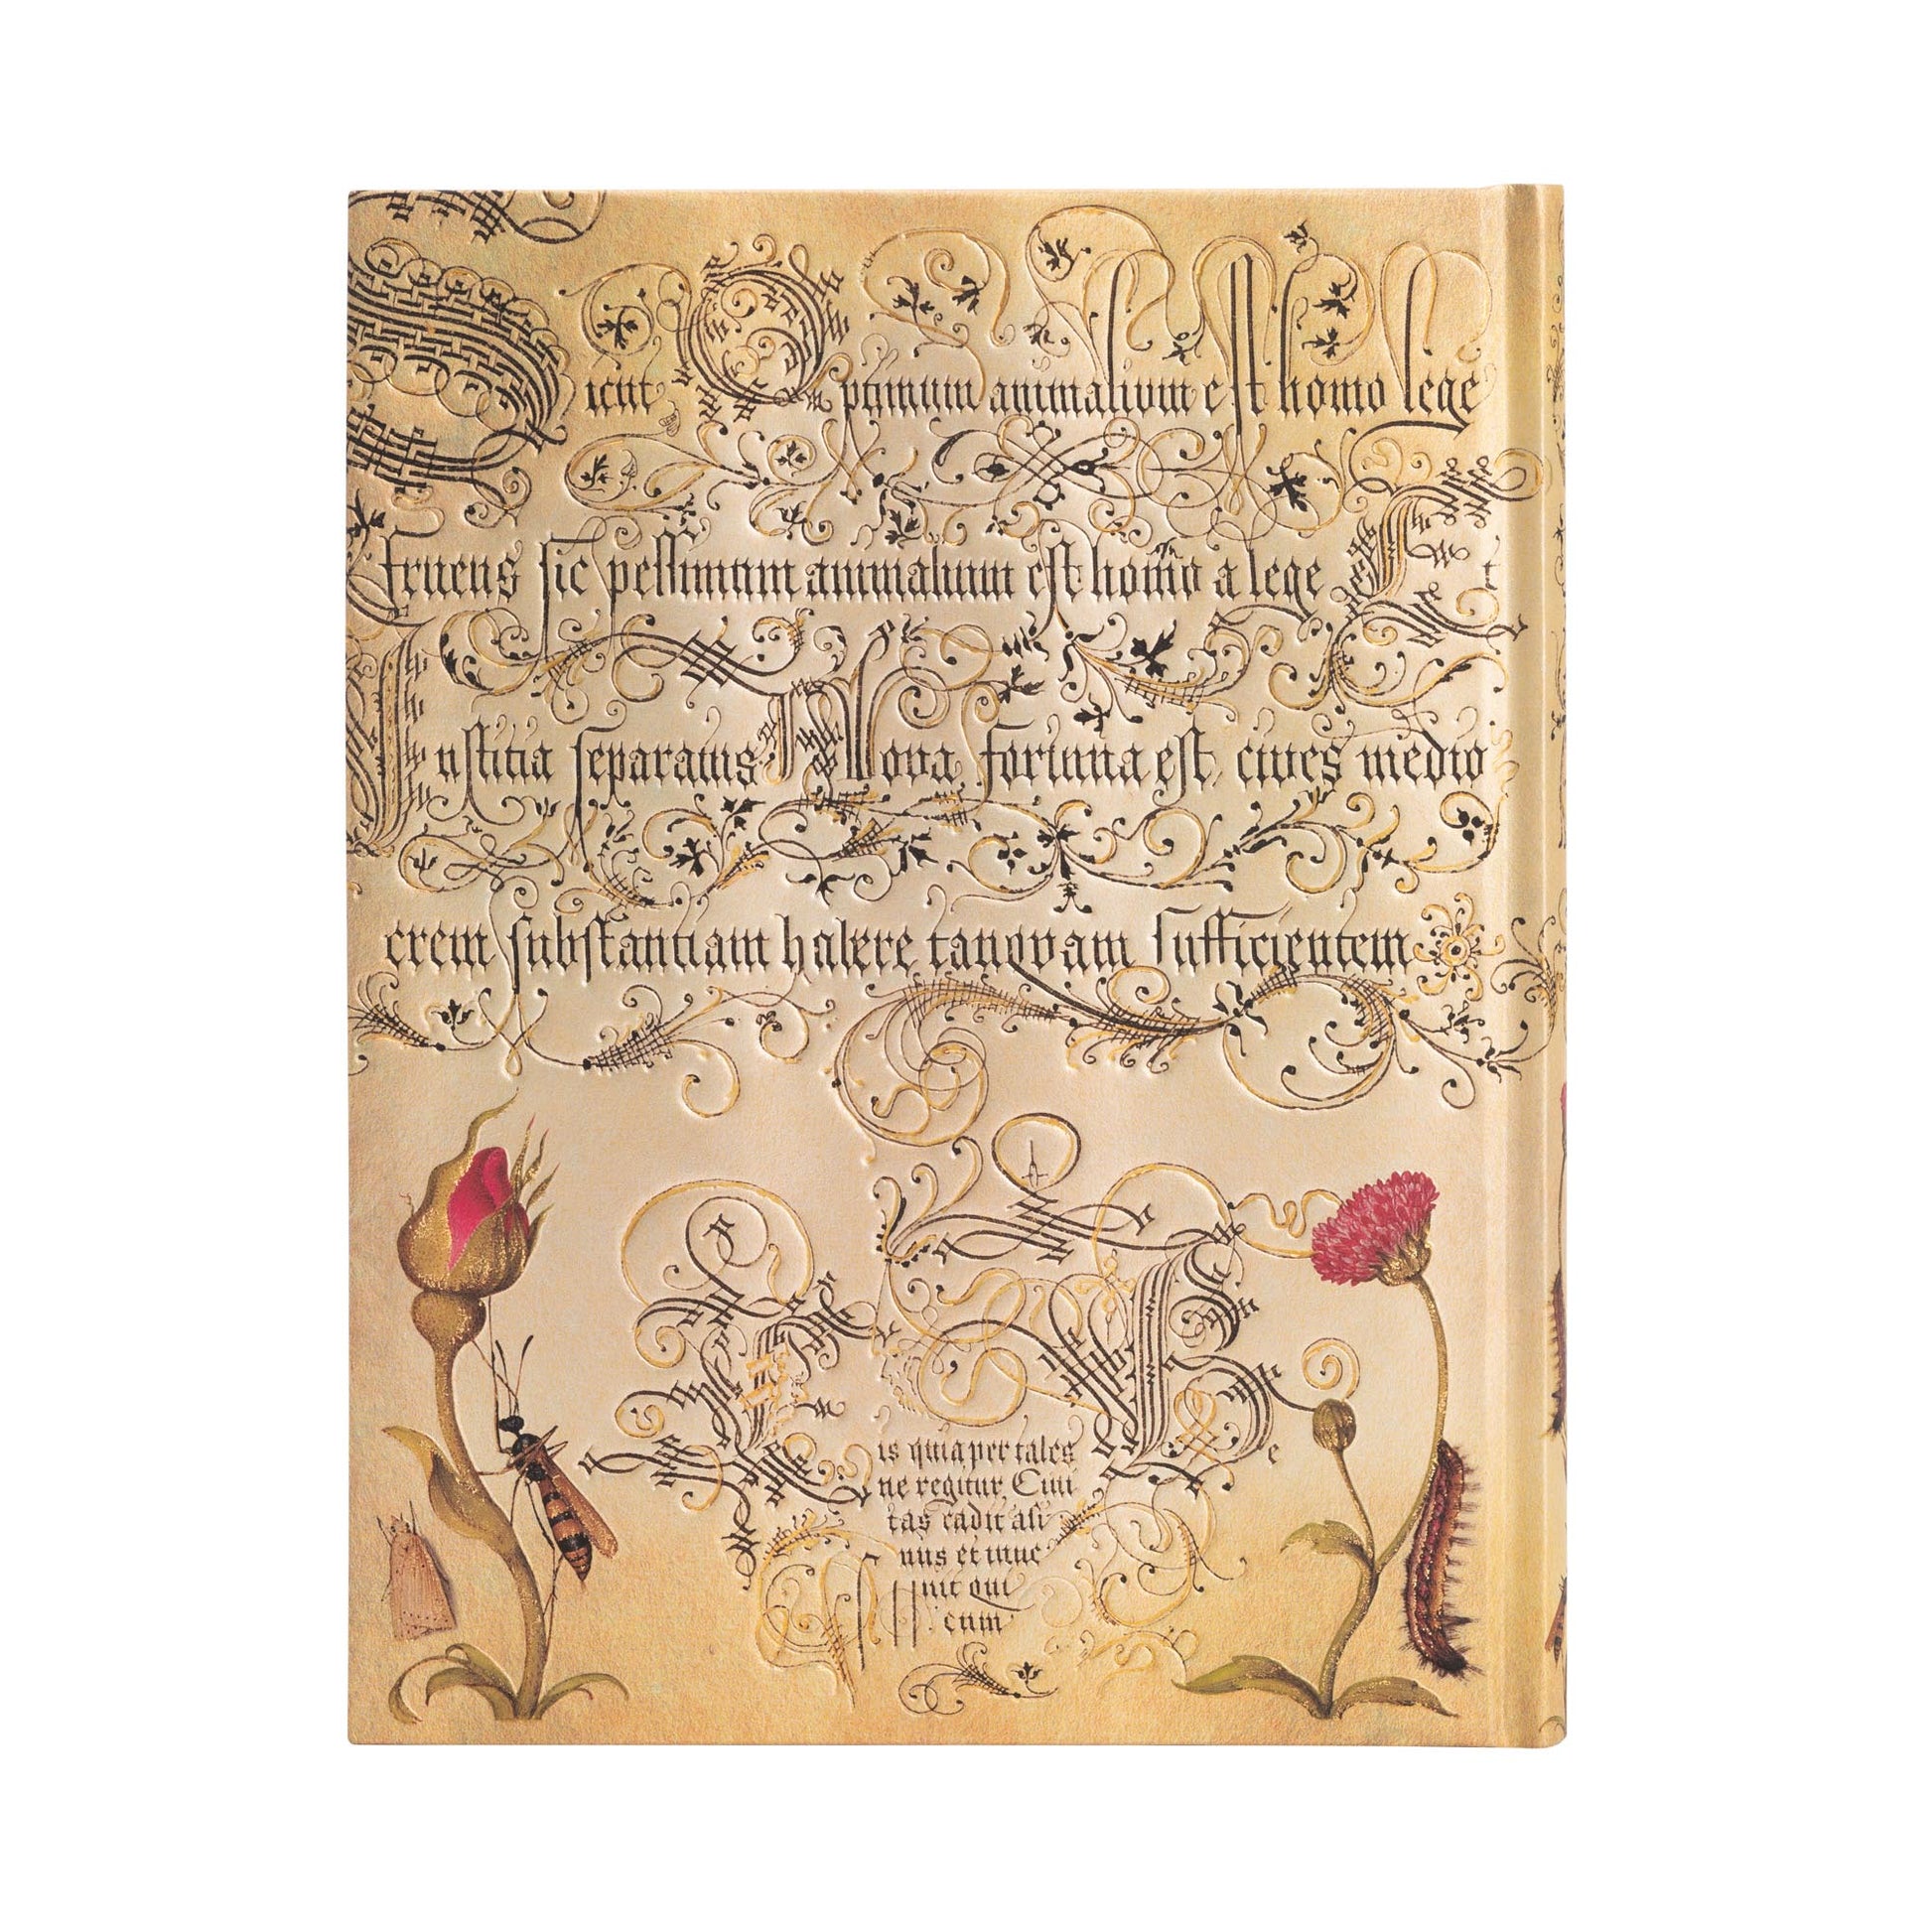 Sicut Optimum animalium est homo lege
fruens sic pessimum animalium est homo a lege Et
Iustitia separatus Nova fortuna est, cives medio
crem substantiam habere tanqvam sufficientem
is quia per tales
ne regitur, Civi
tas cadit asi
nus et inve
nit qui
eum